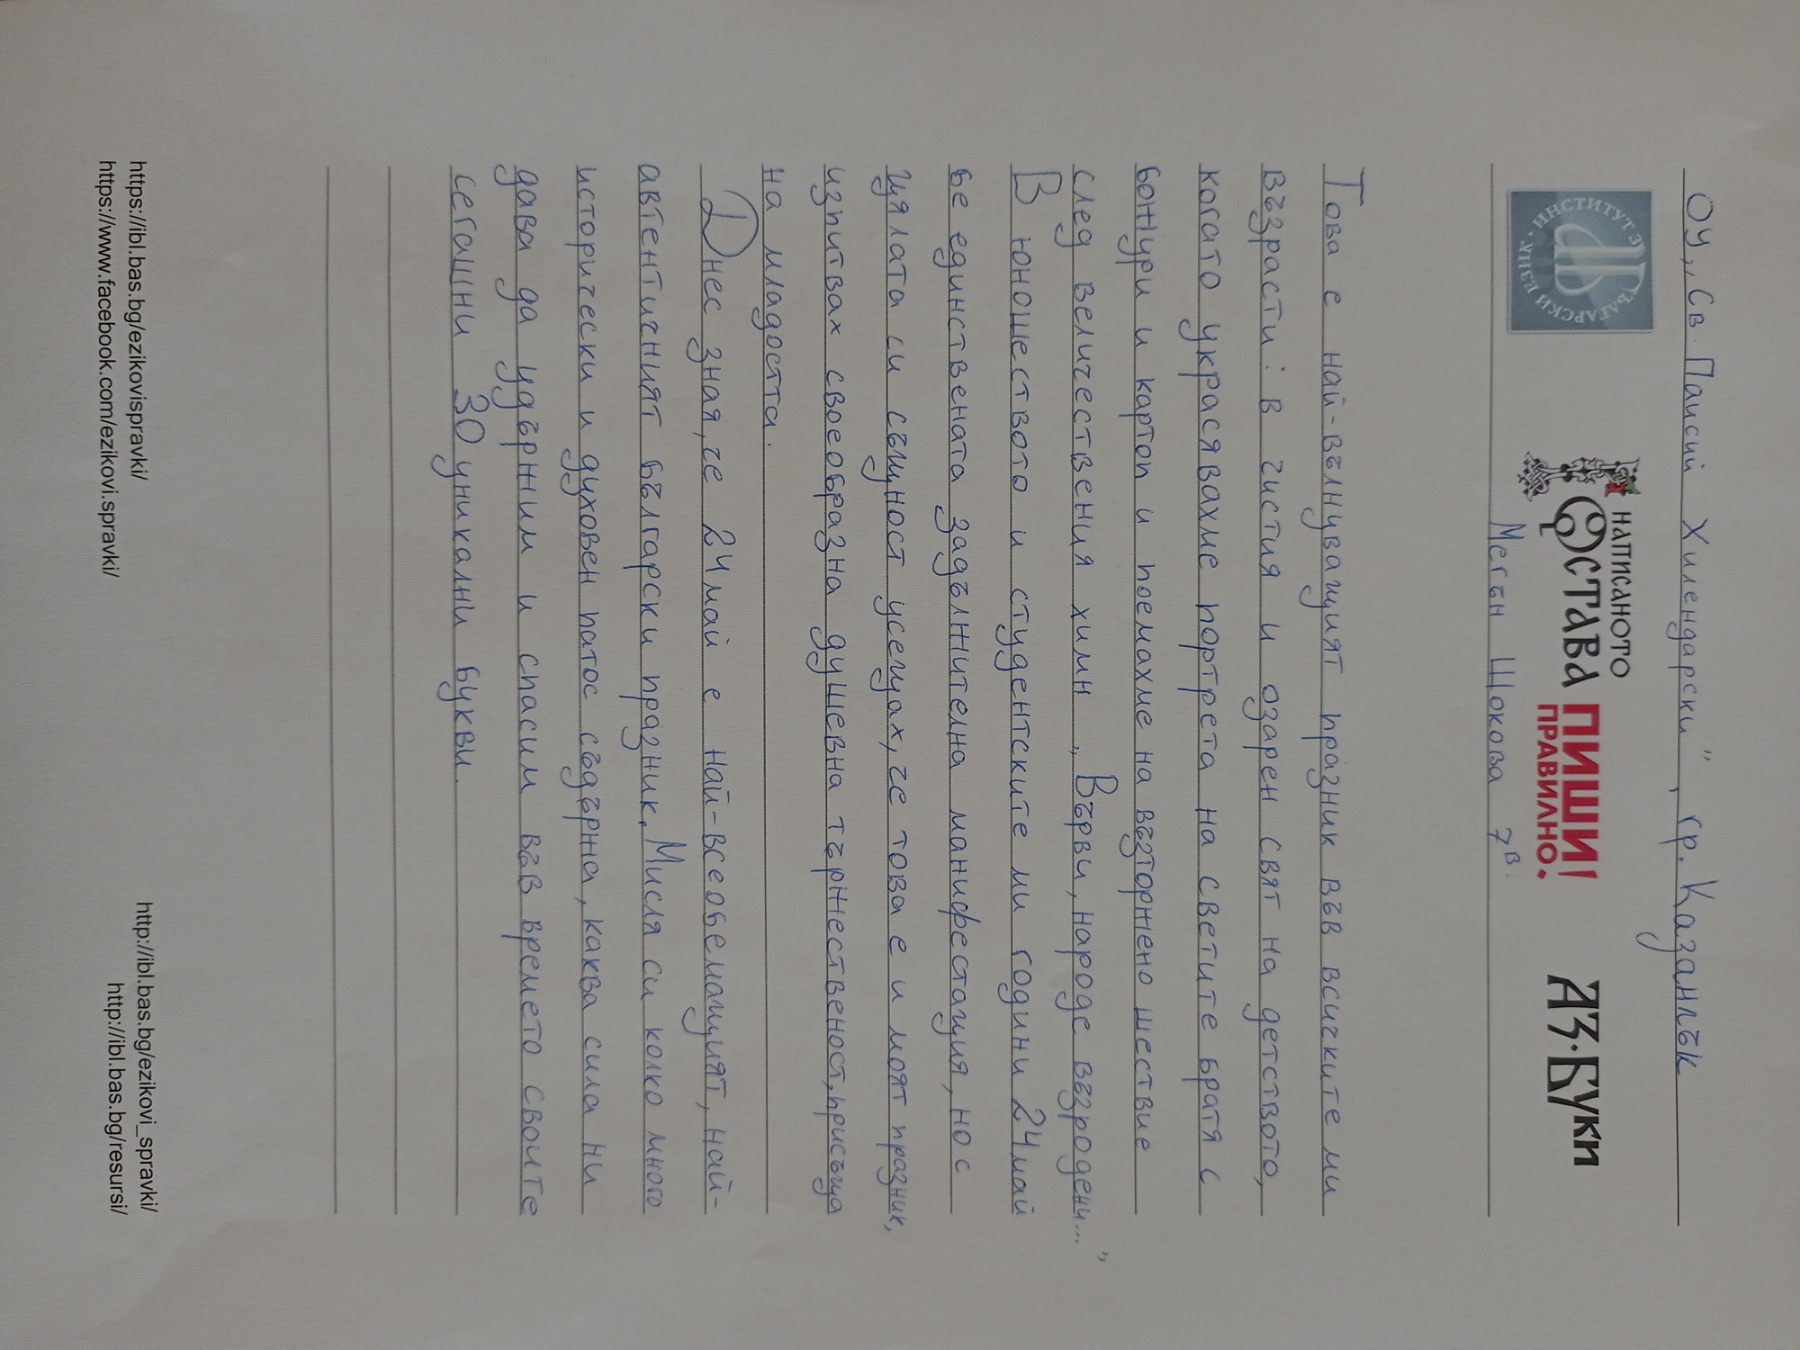 ОУ „Св. Паисий Хилендарски", гр. Казанлък
ИНСТИТУТ ЗА БЪЛГАРСКИ ЕЗИК
НАПИСАНОТО
ОСТАВА
ПИШИ
ПРАВИЛНО!
АЗ·БУКИ
Меган Щокова 7 в.
Това е най-вълнуващият празник във всичките ми
възрасти: в чистия и озарен свят на детството,
когато украсявахме портрета на светите братя с
божури и картоп и поемахме на възторжено шествие
след величествения химн „Върви, народе възродени..."
В юношеството и студентските ми години 24 май
бе единствената задължителна манифестация, но с
цялата си същност усещах, че това е и моят празник,
изпитвах своеобразна душевна тържественост, присъща
на младостта.
Днес зная, че 24 май е най-всеобемащият, най-
автентичният български празник. Мисля си колко много
исторически и духовен патос съдържа, каква сила ни
дава да удържим и спасим във времето своите
сегашни 30 уникални букви.
https://ibl.bas.bg/ezikovispravki/
https://www.facebook.com/ezikovi.spravki/
http://ibl.bas.bg/ezikovi_spravki/
http://ibl.bas.bg/resursi/